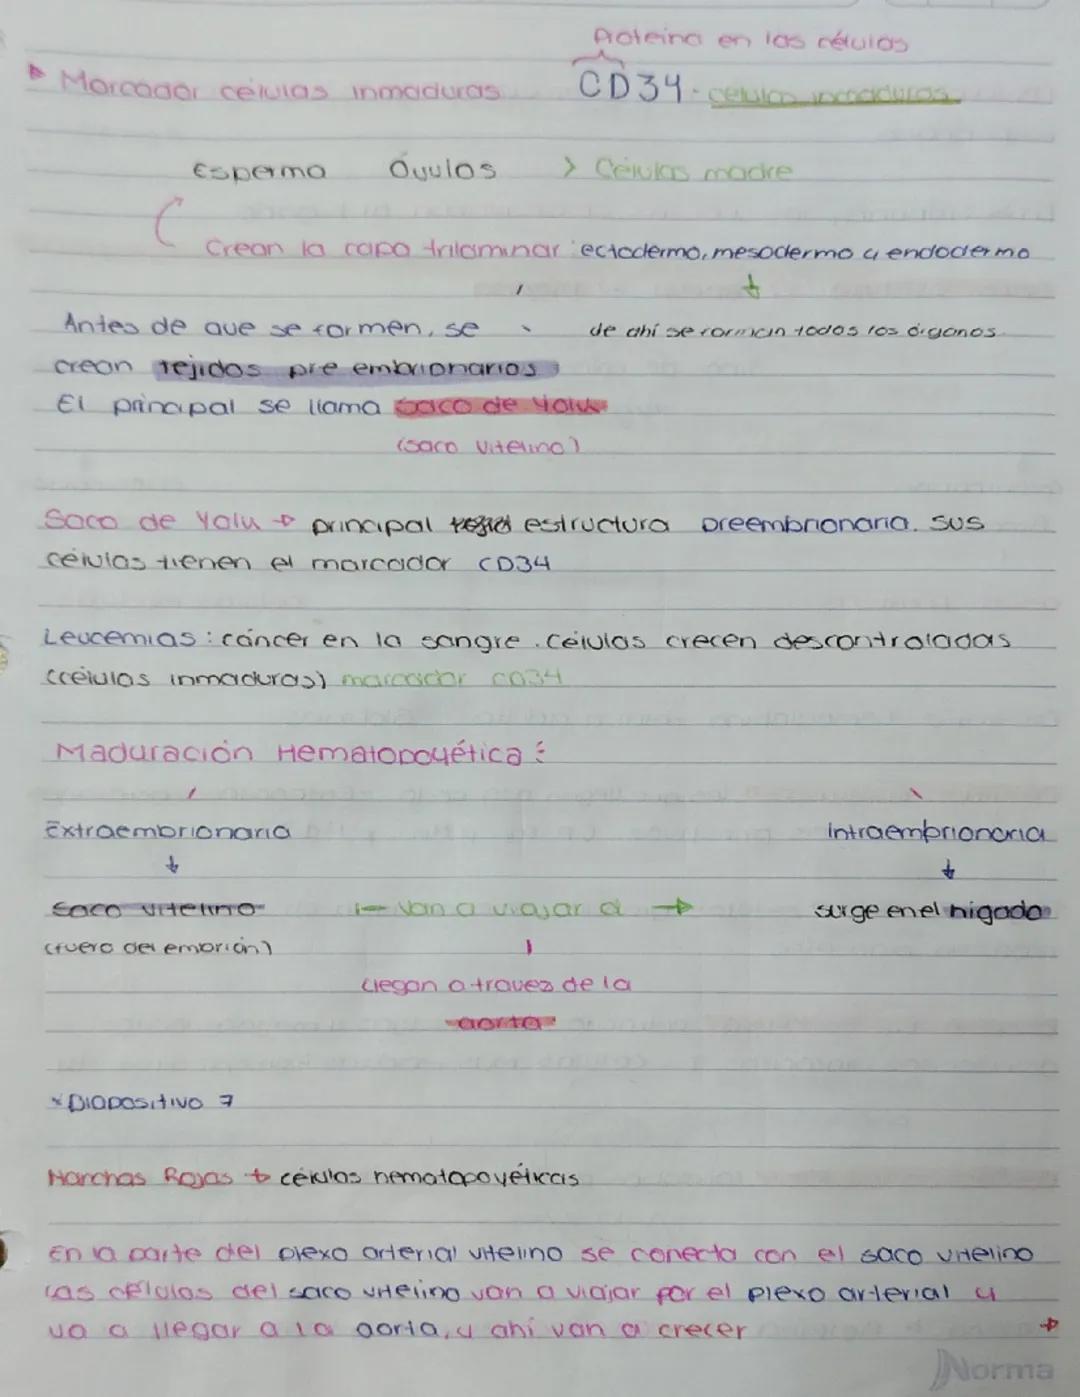 Proteina en las células
Marcador células inmaduras CD34 - células inmaduras
Esperma Óvulos > Células madre
Crean la capa trilaminar: ectodermo, mesodermo y endodermo
Antes de que se formen, se de ahí se forman todos los órganos.
crean tejidos pre embrionarios
El principal se llama saco de Yolk
(saco vitelino)
Saco de Yolk → principal estructura preembrionaria. sus
células tienen el marcador CD34
Leucemias: cáncer en la sangre. Células crecen descontroladas
(células inmaduras) marcador CD34
Maduración Hematopoyética:
Extraembrionaria Intraembrionaria
saco vitelino ← van a viajar al → surge en el hígado
(fuera del embrión)
llegan a travez de la
aorta
*Diapositiva 7
Manchas Rojas → células hematopoyéticas
En la parte del plexo arterial vitelino se conecta con el saco vitelino
las células del saco vitelino van a viajar por el plexo arterial y
va a llegar a la aorta, y ahí van a crecer →
Norma